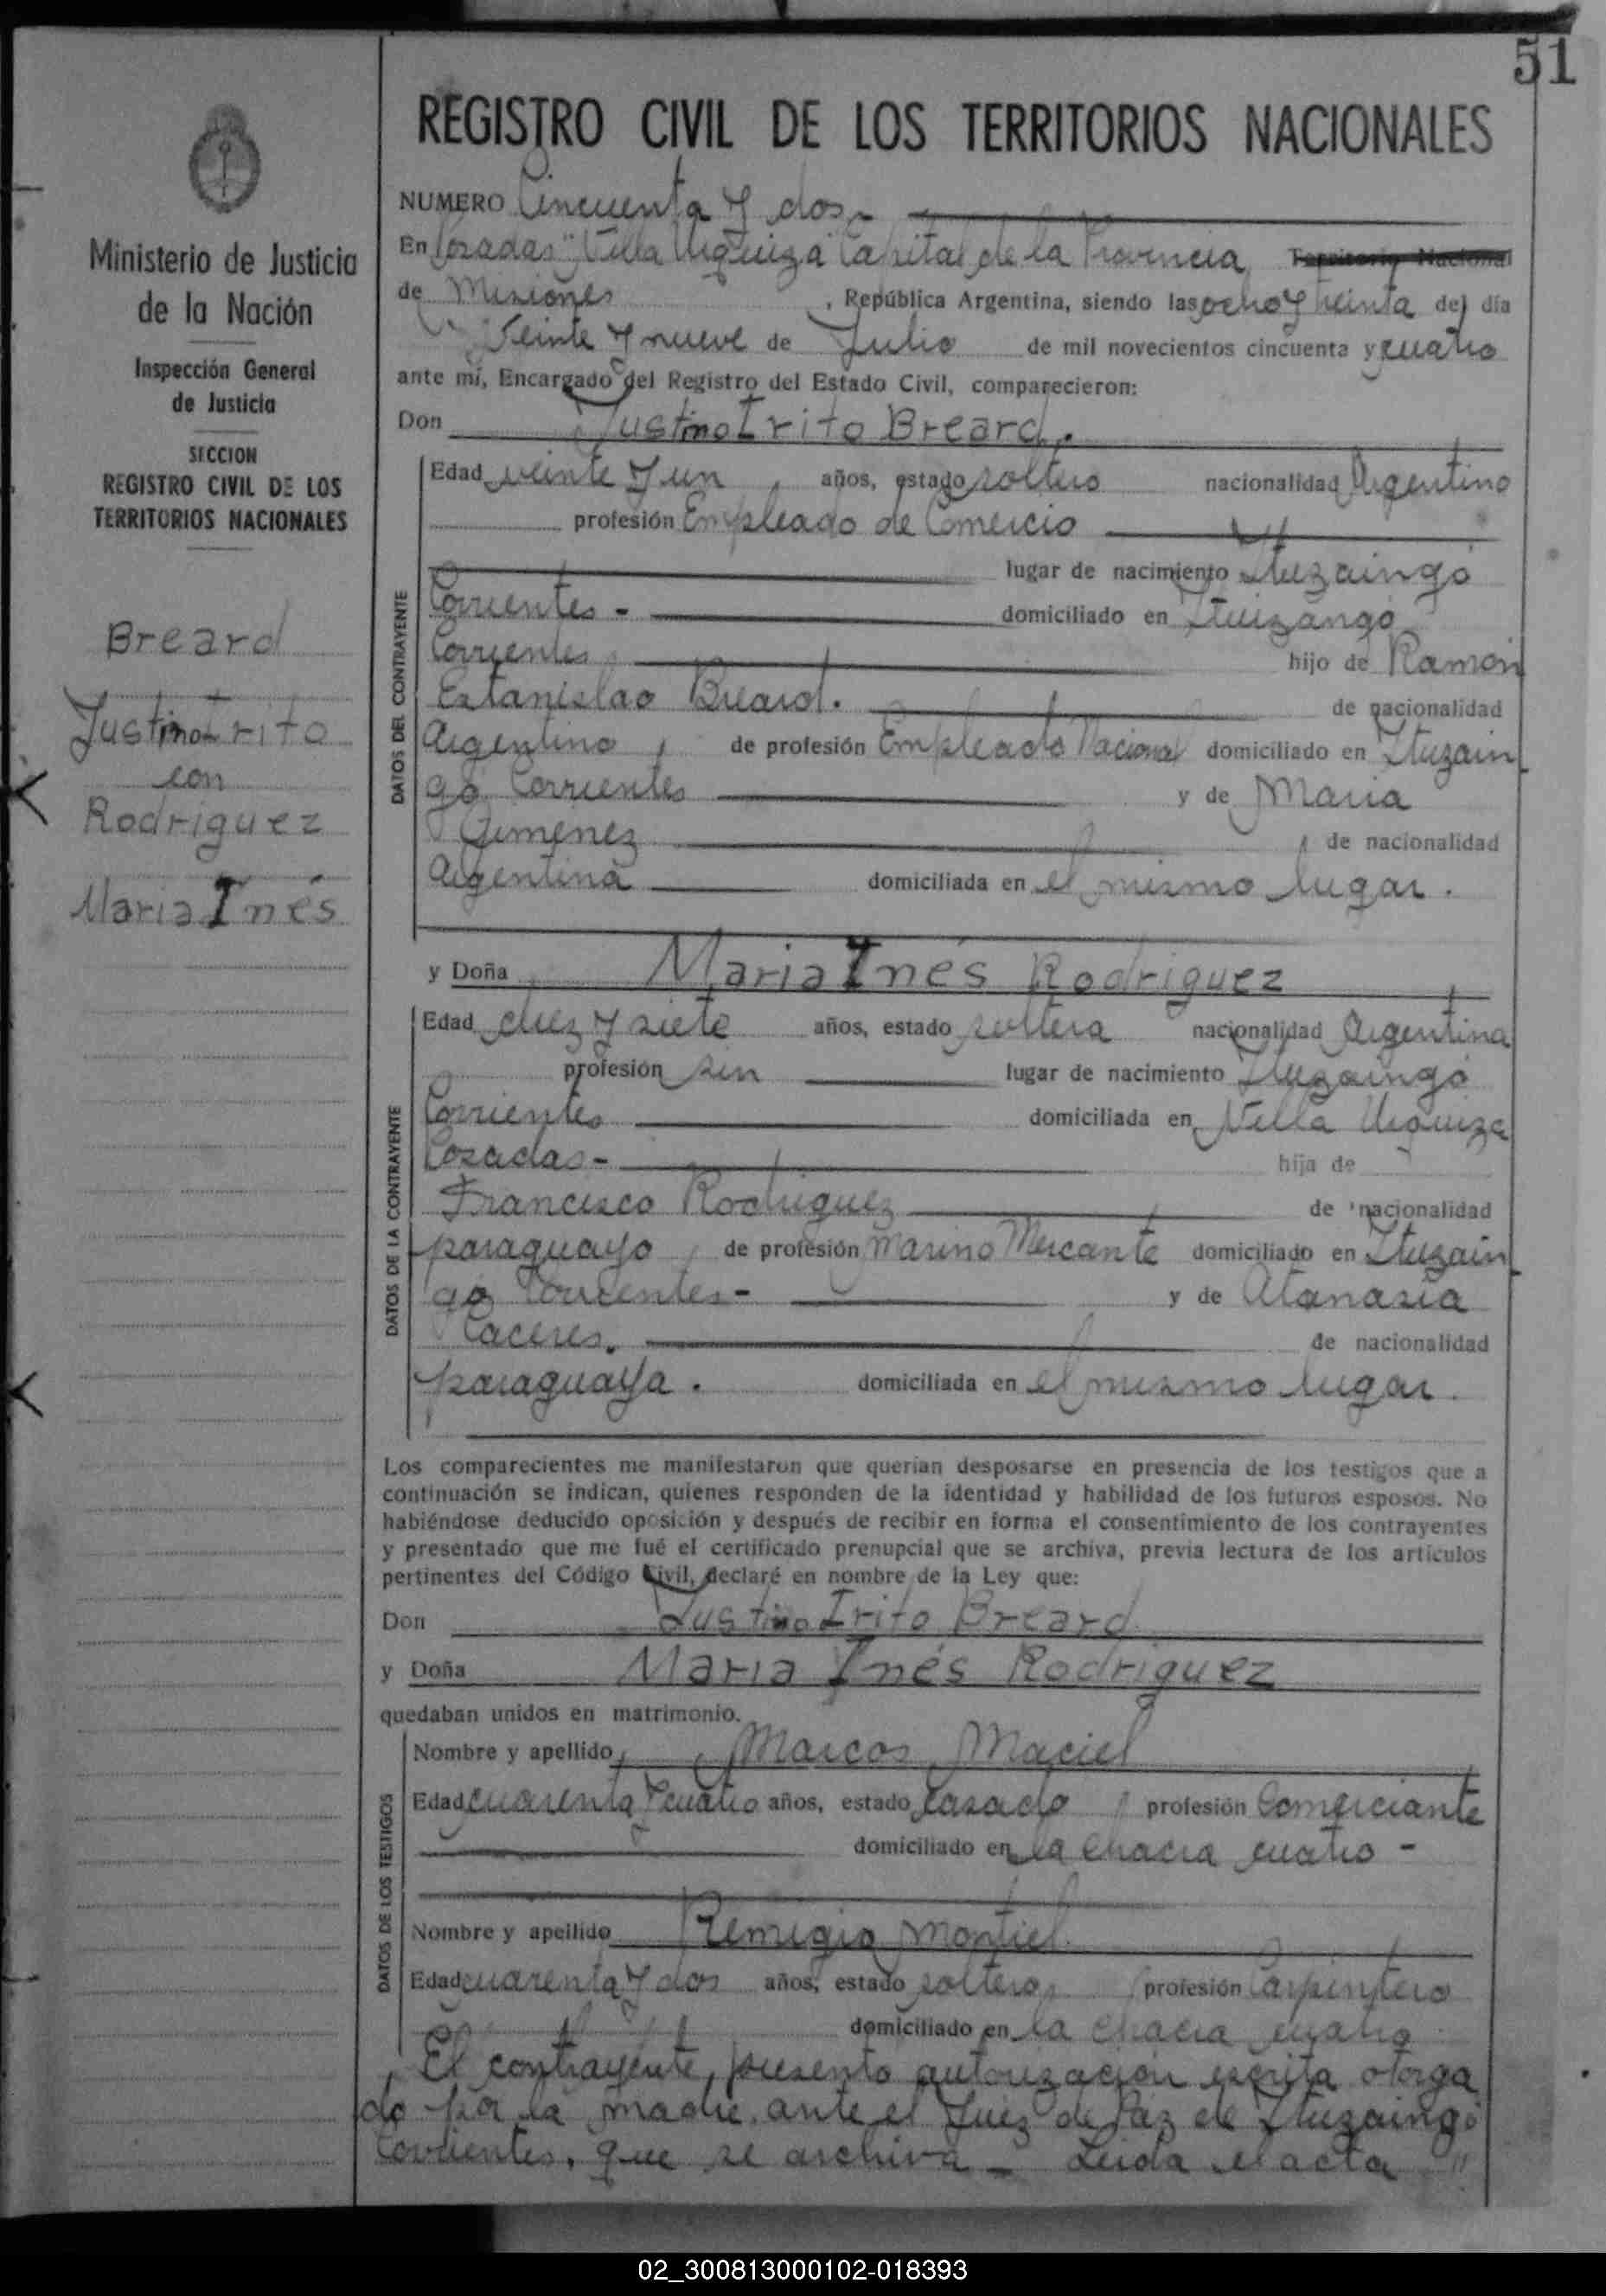 51
Ministerio de Justicia
de la Nación
Inspección General
de Justicia
SECCION
REGISTRO CIVIL DE LOS
TERRITORIOS NACIONALES
Breard
Justino Irito
con
Rodriguez
Maria Inés
REGISTRO CIVIL DE LOS TERRITORIOS NACIONALES
NUMERO Cincuenta y dos.-
En Posadas "Villa Urquiza" Capital de la Provincia Territorio Nacional
de Misiones, República Argentina, siendo las ocho y treinta del día
Veinte y nueve de Julio de mil novecientos cincuenta y cuatro
ante mí, Encargado del Registro del Estado Civil, comparecieron:
Don Justino Irito Breard.
DATOS DEL CONTRAYENTE
Edad veinte y un años, estado soltero nacionalidad Argentino
profesión Empleado de Comercio
lugar de nacimiento Ituzaingó
Corrientes - domiciliado en Ituizangó
Corrientes, hijo de Ramón
Estanislao Breard. de nacionalidad
Argentino, de profesión Empleado Nacional domiciliado en Ituzain
gó Corrientes y de Maria
Gimenez de nacionalidad
Argentina domiciliada en el mismo lugar.
y Doña Maria Inés Rodriguez
DATOS DE LA CONTRAYENTE
Edad diez y siete años, estado soltera nacionalidad Argentina
profesión sin lugar de nacimiento Ituzaingó
Corrientes domiciliada en Villa Urquiza
Posadas - hija de
Francisco Rodriguez de nacionalidad
paraguayo, de profesión Marino Mercante domiciliado en Ituzain
gó Corrientes - y de Atanasia
Caceres. de nacionalidad
paraguaya. domiciliada en el mismo lugar.
Los comparecientes me manifestaron que querían desposarse en presencia de los testigos que a
continuación se indican, quienes responden de la identidad y habilidad de los futuros esposos. No
habiéndose deducido oposición y después de recibir en forma el consentimiento de los contrayentes
y presentado que me fué el certificado prenupcial que se archiva, previa lectura de los artículos
pertinentes del Código Civil, declaré en nombre de la Ley que:
Don Justino Irito Breard
y Doña Maria Inés Rodriguez
quedaban unidos en matrimonio.
DATOS DE LOS TESTIGOS
Nombre y apellido, Marcos Maciel
Edad cuarenta y cuatro años, estado casado, profesión Comerciante
domiciliado en la chacra cuatro -
Nombre y apellido Remigio Montiel.
Edad cuarenta y dos años, estado soltero, profesión Carpintero
domiciliado en la chacra cuatro
El contrayente, presento autorización escrita otorga
do por la madre ante el Juez de Paz de Ituzaingó
Corrientes, que se archiva - Leida el acta "
02_300813000102-018393